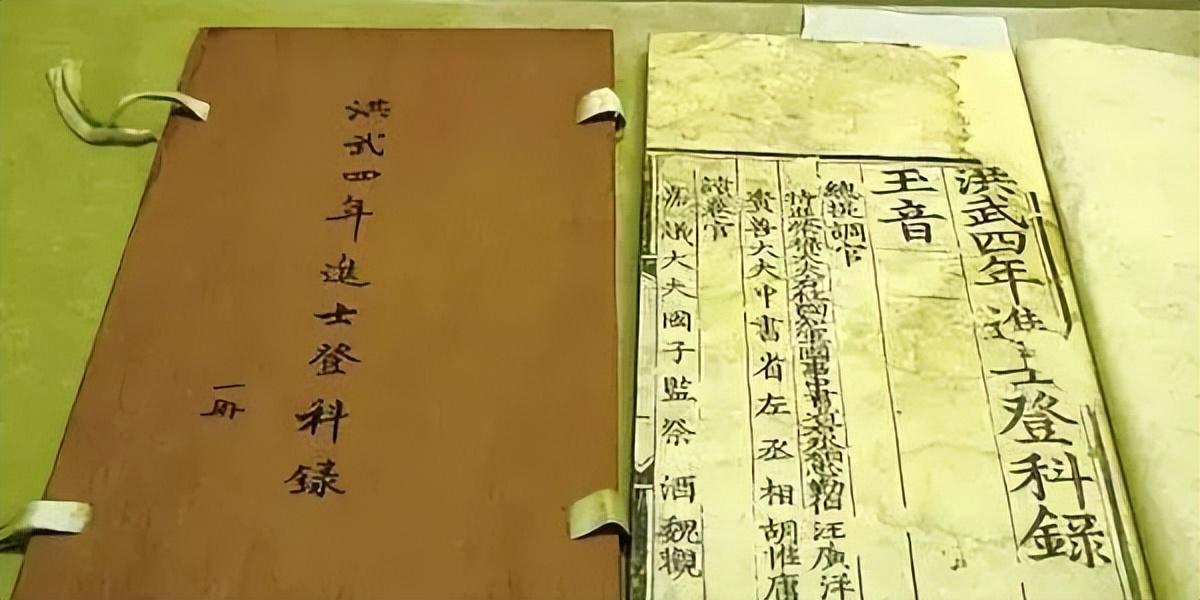 洪武四年進士登科錄
一冊
洪武四年進士登科錄
玉音
總提調官
汪廣洋
資善大夫中書省左丞相胡惟庸
讀卷官
大夫國子監祭酒魏觀